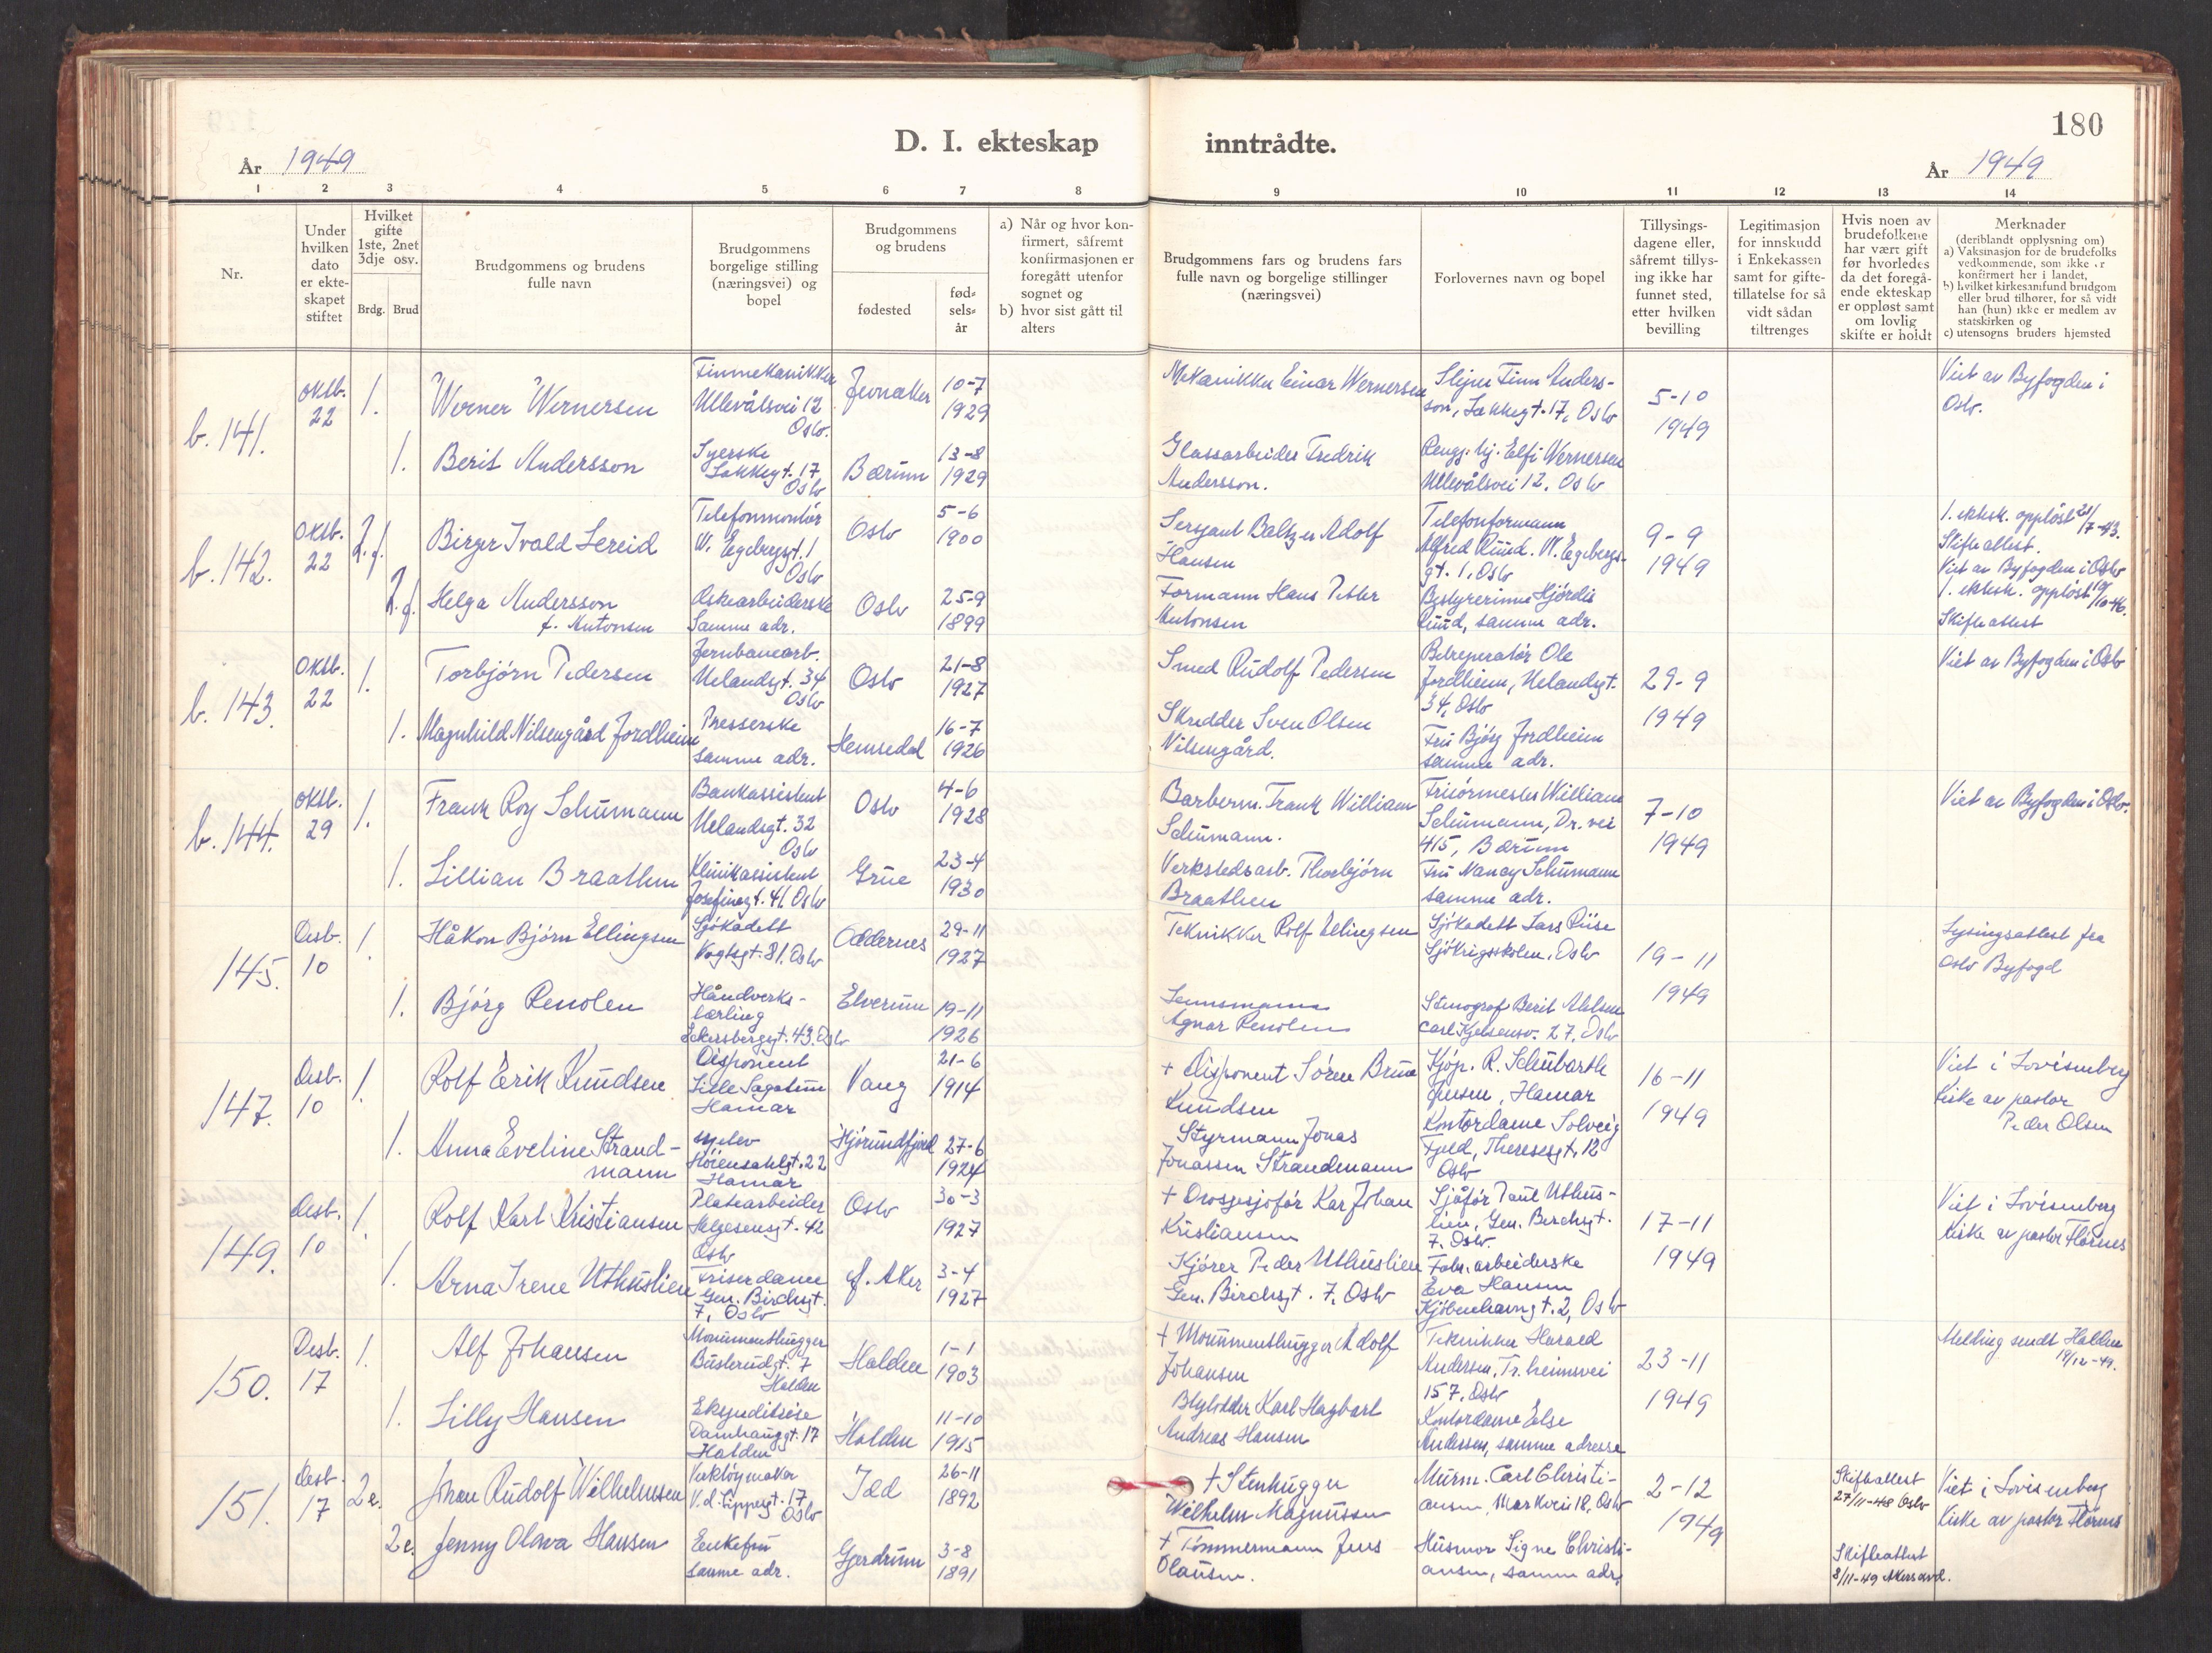 180
D. I. ekteskap inntrådte.
År 1949
År 1949
1 2 3 4 5 6 7 8 9 10 11 12 13 14
Nr.
Under
hvilken
dato
er ekte-
skapet
stiftet
Hvilket
gifte
1ste, 2net
3dje osv.
Brdg. Brud
Brudgommens og brudens
fulle navn
Brudgommens
borgelige stilling
(næringsvei) og
bopel
Brudgommens
og brudens
fødested
fød-
sels-
år
a) Når og hvor kon-
firmert, såfremt
konfirmasjonen er
foregått utenfor
sognet og
b) hvor sist gått til
alters
Brudgommens fars og brudens fars
fulle navn og borgelige stillinger
(næringsvei)
Forlovernes navn og bopel
Tillysings-
dagene eller,
såfremt tillys-
ing ikke har
funnet sted,
etter hvilken
bevilling
Legitimasjon
for innskudd
i Enkekassen
samt for gifte-
tillatelse for så
vidt sådan
tiltrenges
Hvis noen av
brudefolkene
har vært gift
før hvorledes
da det foregå-
ende ekteskap
er oppløst samt
om lovlig
skifte er holdt
Merknader
(deriblandt opplysning om)
a) Vaksinasjon for de brudefolks
vedkommende, som ikke er
konfirmert her i landet,
b) hvilket kirkesamfund brudgom
eller brud tilhører, for så vidt
han (hun) ikke er medlem av
statskirken og
c) utensogns bruders hjemsted
b. 141.
oktb.
22
1.
Werner Wernersen
Finmekanikker
Ullevålsvei 12
Oslo.
Jevnaker
10-7
1929
Mekanikker Einar Wernersen
Finn Anders-
son, Lakkegt. 17, Oslo
5-10
1949
Viet av Byfogden i
Oslo.
1.
Berit Andersson
Syerske
Lakkegt. 17
Oslo
Bærum
13-8
1929
Glassarbeider Fredrik
Andersson.
Rengj. hj. Elfi Wernersen
Ullevålsvei 12. Oslo
b. 142.
oktb.
22
2. f.
Birger Ivald Lereid
Telefonmontør
W. Egebergsgt. 1
Oslo
Oslo
5-6
1900
Sersjant Baltzer Adolf
Hansen
Telefonformann
Alfred Ruud. W. Egebergs-
gt. 1. Oslo
9-9
1949
1. ektesk. oppløst 21/7-43.
Skifteattest.
Viet av Byfogden i Oslo
2. f.
Helga Andersson
f. Antonsen
Eskearbeiderske
Samme adr.
Oslo
25-9
1899
Formann Hans Peter
Antonsen
Bestyrerinne Hjørdis
Ruud, samme adr.
1. ektesk. oppløst 19/10-46.
Skifteattest
b. 143.
oktb.
22
1.
Torbjørn Pedersen
Jernbanearb.
Uelandsgt. 34
Oslo
Oslo
21-8
1927
Smed Rudolf Pedersen
Bilreparatør Ole
Jordheim, Uelandsgt.
34, Oslo
29-9
1949
Viet av Byfogden i Oslo
1.
Magnhild Nilsengård Jordheim
Presserske
samme adr.
Hemsedal
16-7
1926
Skredder Sven Olsen
Nilsengård.
Fru Bjørg Jordheim
samme adr.
b. 144.
oktb.
29
1.
Frank Roy Schumann
Bankassistent
Uelandsgt. 32
Oslo
Oslo
4-6
1928
Barberm. Frank William
Schumann.
Frisørmester William
Schumann, Dr. vei
415, Bærum
7-10
1949
Viet av Byfogden i Oslo.
1.
Lillian Braathen
Klinikassistent
Josefinesgt. 41. Oslo
Grue
23-4
1930
Verkstedsarb. Thorbjørn
Braathen
Fru Nancy Schumann
samme adr.
145.
Desb.
10
1.
Håkon Bjørn Ellingsen
Sjøkadett
Vogtsgt. 81. Oslo
Oddernes
29-11
1927
Tekniker Rolf Ellingsen
Sjøkadett Lars Riise
Sjøkrigsskolen. Oslo
19-11
1949
Lysingsattest fra
Oslo Byfogd
1.
Bjørg Renolen
Håndverks-
lærling
Eckersbergsgt. 43. Oslo
Elverum
19-11
1926
Lensmann
Agnar Renolen
Stenograf Berit Ahlsen
Carl Kjelsensv. 27. Oslo
147.
Desb.
10
1.
Rolf Erik Knudsen
Disponent
Lille Sagatun
Hamar
Vang
21-6
1914
+ Disponent Søren Bruun
Knudsen
Kjøp. R. Schubarth
Jensen, Hamar
16-11
1949
Viet i Lovisenberg
kirke av pastor
Peder Olsen
1.
Anna Eveline Strand-
mann
Høiensahlgt. 22
Hamar
Hjørundfjord
27-6
1924
Styrmann Jonas
Jonassen Strandmann
Kontordame Solveig
Fjeld, Theresesgt. 12
Oslo
149.
Desb.
10
1.
Rolf Karl Kristiansen
Platearbeider
Helgesensgt. 42
Oslo
Oslo
30-3
1927
+ Drosjesjåfør Karl Johan
Kristiansen
Sjåfør Paul Uthus-
lien, Gen. Birchsgt.
7. Oslo.
17-11
1949
Viet i Lovisenberg
kirke av pastor Flørnes
1.
Arna Irene Uthuslien
Friserdame
Gen. Birchsgt.
7, Oslo
Aker
3-4
1927
Kjører Peder Uthuslien
Gen. Birchsgt. 7, Oslo
Fabr. arbeiderske
Eva Hansen
Kjøbenhavngt. 2, Oslo
150.
Desb.
17
1.
Alf Johansen
Monumenthugger
Buskerudgt. 7
Halden
Halden
1-1
1903
+ Monumenthugger Adolf
Johansen
Tekniker Harald
Andersen, Tr.heimsvei
157. Oslo
23-11
1949
Melding sendt Halden
19/12-49.
1.
Lilly Hansen
Ekspeditrise
Damhauggt. 17
Halden
Halden
11-10
1915
Blylodder Karl Hagbart
Andreas Hansen
Kontordame Else
Andersen, samme adresse
151.
Desb.
17
2e.
Johan Rudolf Wilhelmsen
Verktøymaker
V. d. Lippesgt. 17
Oslo
Idd
26-11
1892
+ Stenhugger
Wilhelm Magnussen
Murm. Carl Christi-
ansen, Markvei 18, Oslo
2-12
1949
Skifteattest
27/11-48 Oslo
Viet i Lovisenberg
kirke av pastor Flørnes
2e.
Jenny Olava Hansen
Enkefru
samme adr.
Gjerdrum
3-8
1891
+ Tømmermann Jens
Olausen.
Husmor Signe Christi-
ansen, samme adr.
Skifteattest
8/11-49 Akers avd.